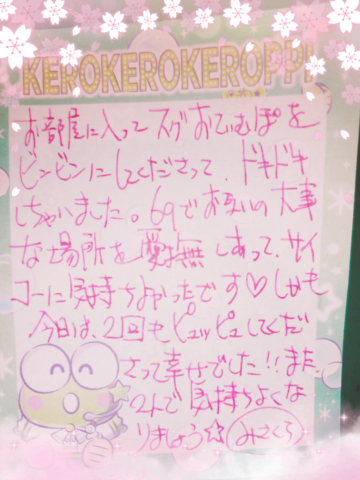 KEROKEROKEROPPI
お部屋に入ってスグおてぃむぽを
ビンビンにしてくださって、ドキドキ
しちゃいました。69でお互いの大事
な場所を愛撫しあって、サイ
コーに気持ちよかったです♡しかも
今日は、2回もピュッピュしてくだ
さって幸せでした!!また
2人で気持ちよくな
りましょう☆みさくら